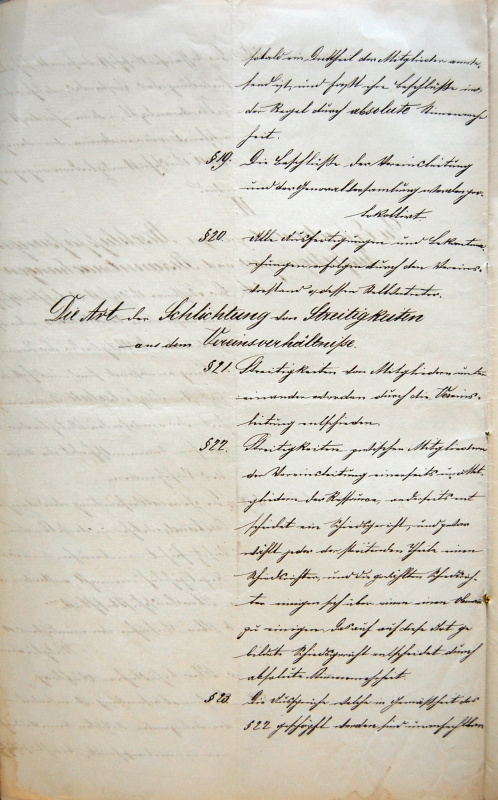 sobald ein Drittheil der Mitglieder anwe-
send ist, und faßt ihre Beschlüße in
der Regel durch absolute Stimmenmehr
heit.
§19. Die Beschlüße der Vereinsleitung
und der Generalversammlung werden pro-
tokollirt.
§20. Alle Ausfertigungen und Bekannt-
machungen erfolgen durch den Vereins-
vorstand o. dessen Stellvertreter.
Die Art der Schlichtung von Streitigkeiten
aus dem Vereinsverhältniße.
§21. Streitigkeiten von Mitgliedern unter
einander werden durch die Vereins-
leitung entschieden.
§22. Streitigkeiten zwischen Mitgliedern
der Vereinsleitung einerseits u. Mit-
gliedern der Ressource, anderseits ent
scheidet ein Schiedsgericht, und zwar
wählt jeder der streitenden Theile einen
Schiedsrichter, und die gewählten Schiedsrich-
ter einigen sich über einen Obmann
zu einigen. Das auf diese Art ge
bildete Schiedsgericht entscheidet durch
absolute Stimmenmehrheit.
§23. Die Aussprüche welche in Gemäßheit des
§22 geschöpft werden sind unanfechtbar